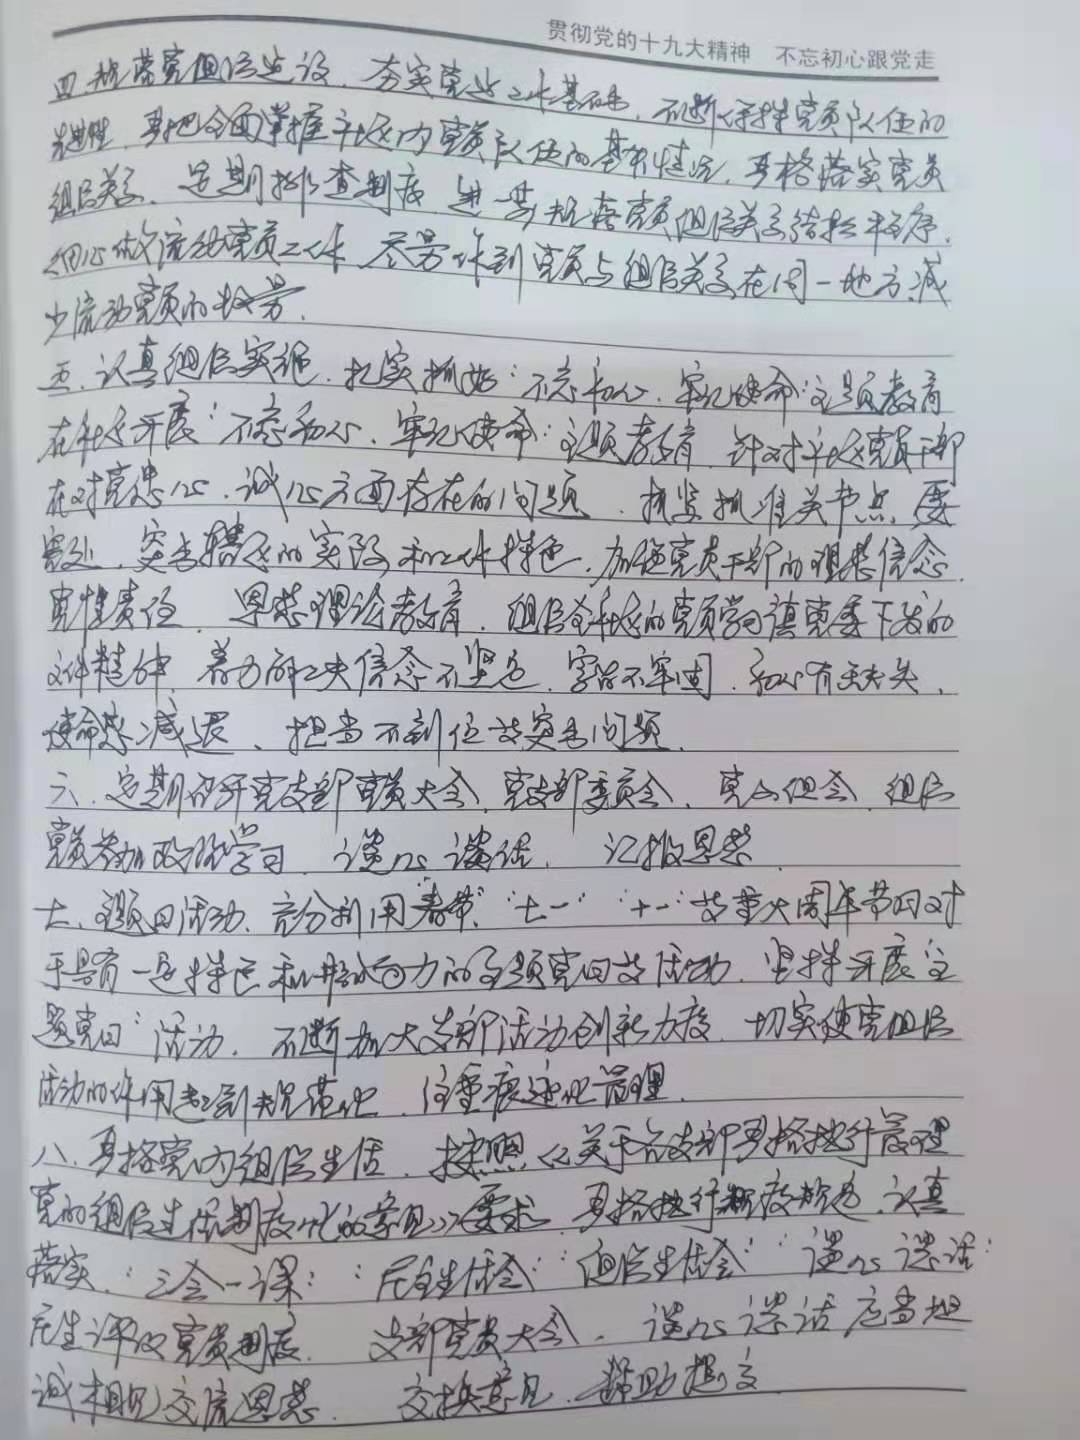 贯彻党的十九大精神 不忘初心跟党走
四、规范党组织建设，夯实党建工作基础，不断保持党员队伍的
先进性，要把全面掌握社区内党员队伍的基本情况，严格落实党员
组织关系，定期排查制度，进一步规范党员组织关系结转程序，
细心做流动党员工作，尽量作到党员与组织关系在同一地方，减
少流动党员的数量。
五、认真组织实施，扎实抓好“不忘初心、牢记使命”主题教育
在社区开展“不忘初心、牢记使命”主题教育，针对社区党员干部
在对党忠心、诚心方面存在的问题，抓紧抓准关节点、要
害处，突出辖区的实际和工作特色，加强党员干部的理想信念、
党性责任、思想理论教育，组织全社区的党员学习镇党委下发的
文件精神，着力解决信念不坚定、宗旨不牢固、初心有缺失、
使命感减退、担当不到位等突出问题。
六、定期召开党支部党员大会、党支部委员会、党小组会，组织
党员参加政治学习，谈心谈话，汇报思想。
七、主题日活动，充分利用“春节”“七一”“十一”等重大周年节日对
于具有一定特色和影响力的主题党日等活动，坚持开展“主
题党日”活动，不断加大支部活动创新力度，切实使党组织
活动的作用起到规范化，注重痕迹化管理。
八、严格党内组织生活，按照《关于各支部严格执行管理
党的组织生活制度化的意见》要求，严格执行制度规定，认真
落实“三会一课”“民主生活会”“组织生活会”“谈心谈话”
民主评议党员制度，支部党员大会，谈心谈话应当坦
诚相见交流思想，交换意见，帮助提高